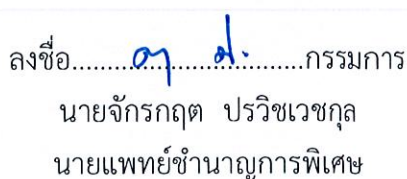 ลงชื่อ.................................กรรมการ
นายจักรกฤต ปรวิชเวชกุล
นายแพทย์ชำนาญการพิเศษ